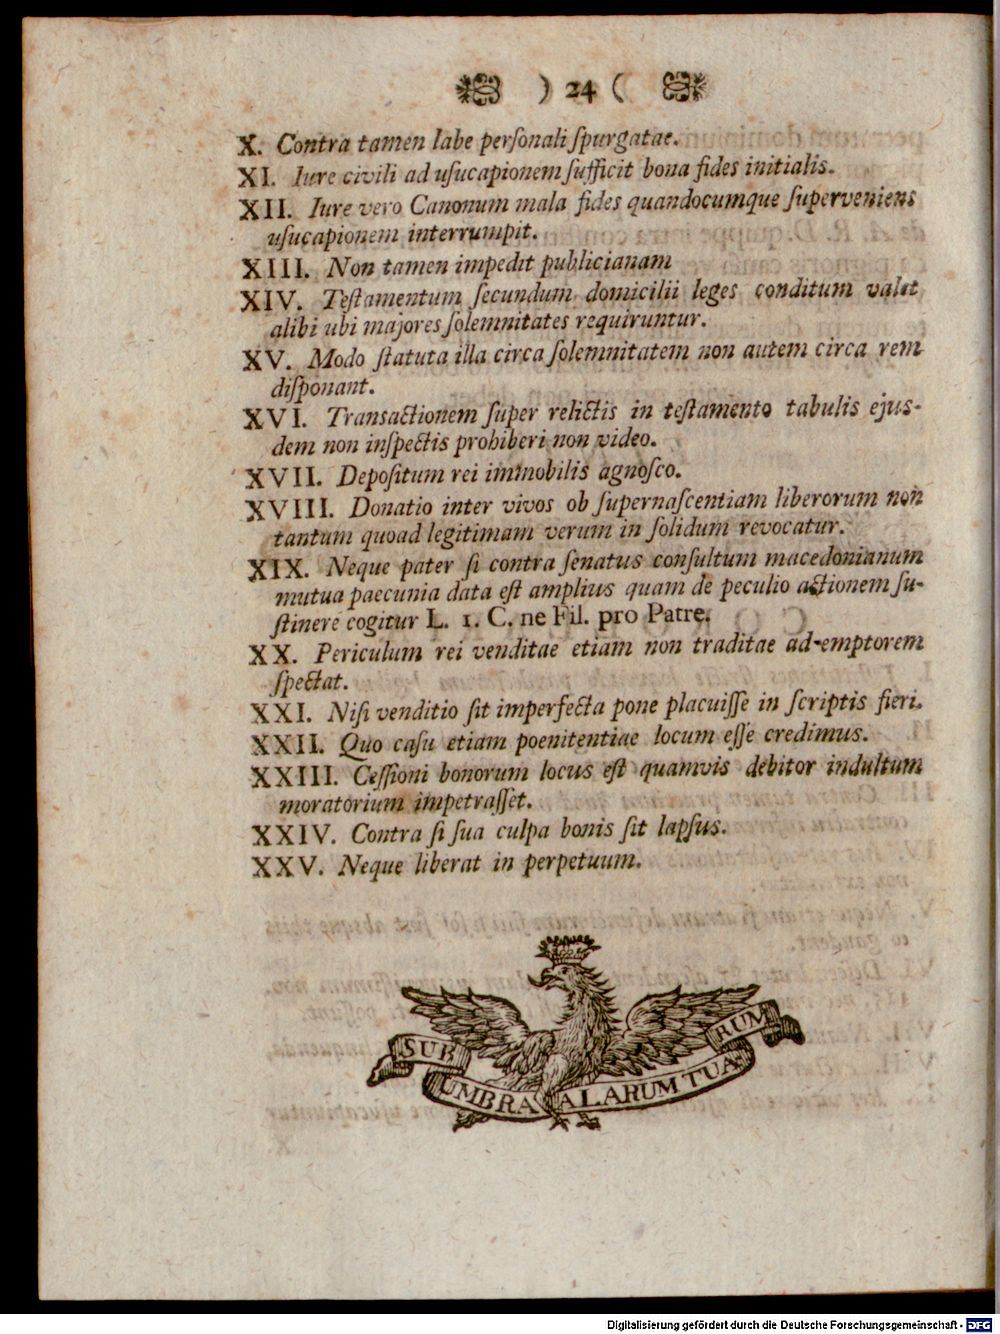 ) 24 (
X. Contra tamen labe perſonali ſpurgatae.
XI. Iure civili ad uſucapionem ſufficit bona fides initialis.
XII. Iure vero Canonum mala fides quandocumque ſuperveniens
uſucapionem interrumpit.
XIII. Non tamen impedit publicianam
XIV. Teſtamentum ſecundum domicilii leges conditum valet
alibi ubi majores ſolemnitates requiruntur.
XV. Modo ſtatuta illa circa ſolemnitatem non autem circa rem
diſponant.
XVI. Transactionem ſuper relictis in teſtamento tabulis ejus-
dem non inſpectis prohiberi non video.
XVII. Depoſitum rei immobilis agnoſco.
XVIII. Donatio inter vivos ob ſupernaſcentiam liberorum non
tantum quoad legitimam verum in ſolidum revocatur.
XIX. Neque pater ſi contra ſenatus conſultum macedonianum
mutua paecunia data eſt amplius quam de peculio actionem ſu-
ſtinere cogitur L. 1. C. ne Fil. pro Patre.
XX. Periculum rei venditae etiam non traditae ad-emptorem
ſpectat.
XXI. Niſi venditio ſit imperfecta pone placuiſſe in ſcriptis fieri.
XXII. Quo caſu etiam poenitentiae locum eſſe credimus.
XXIII. Ceſſioni bonorum locus eſt quamvis debitor indultum
moratorium impetraſſet.
XXIV. Contra ſi ſua culpa bonis ſit lapſus.
XXV. Neque liberat in perpetuum.
SUB UMBRA ALARUM TUARUM
Digitalisierung gefördert durch die Deutsche Forschungsgemeinschaft - DFG